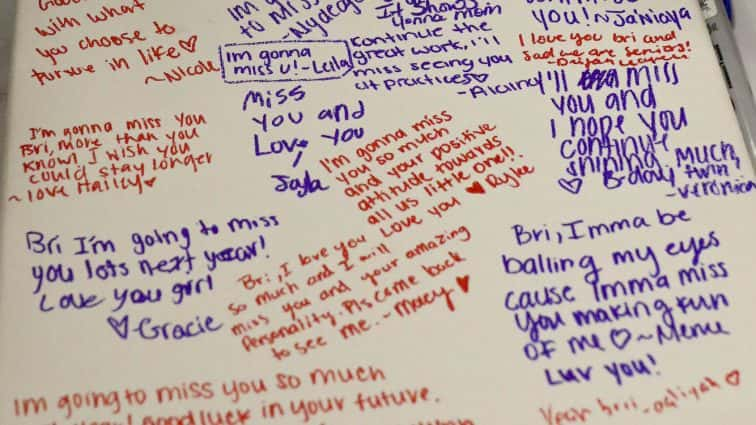 with what
you choose to
pursue in life♡
~Nicole
to miss
Im gonna
miss u! - Laila
It shows
Yonna mom
continue the
great work, I'll
miss seeing you
at practices♡
YOU! ~ Janiaya
I love you bri and
sad we are seniors!
I'm gonna miss you
Bri, more than you
know! I wish you
could stay longer
~ love Hailey♥
Miss
you and
Love you
Jayla
I'm gonna miss
you so much
and your positive
attitude towards
all us little one!!
Love you ♥ Rylee
I'll miss
you and
I hope you
continue
shining Much,
♡ B-day twin
-veronica
Bri I'm going to miss
you lots next year!
Love you girl
♡-Gracie
Bri, I love you
so much and I will
miss you and your amazing
personality. Pls came back
to see me. - Macy ♥
Bri, Imma be
balling my eyes
cause Imma miss
you making fun
of me ♡ ~Menu
Luv you!
Im going to miss you so much
good luck in your future.
Yeah brii - aaliyah ♡